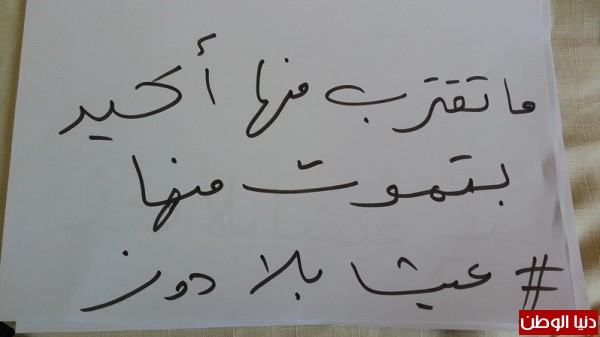 ما تقترب منها أكيد
بتموت منها
# عيشا بلا دوز
دنيا الوطن